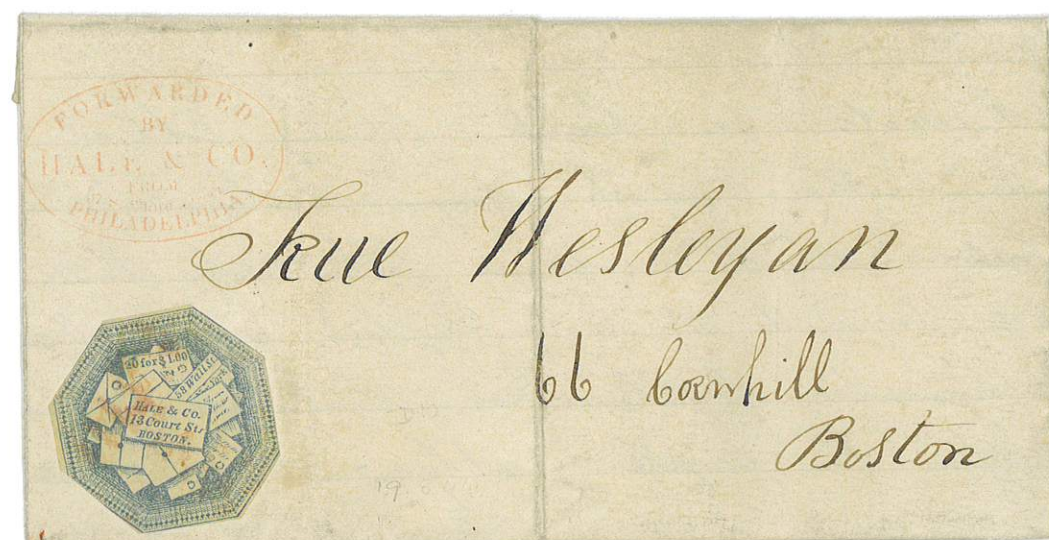 FORWARDED
BY
HALE & CO.
FROM
PHILADELPHIA
True Wesleyan
66 Cornhill
Boston
20 for $1.00
58 Wall St
HALE & Co.
13 Court Str
BOSTON.
19